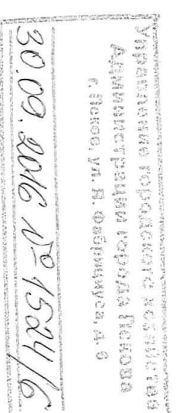 Управление городского хозяйства
Администрации города Пскова
г. Псков, ул. Я. Фабрициуса, д. 6
30.09.2016 № 1524/6